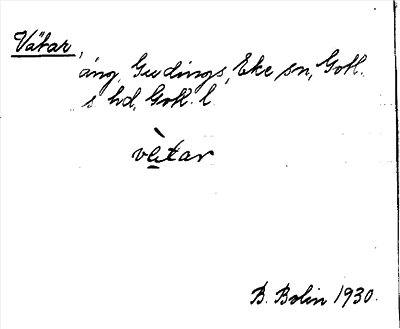 Vätar,
äng, Gudings, Eke sn, Gotl.
s hd, Gotl. l
vètar
B. Bolin 1930.